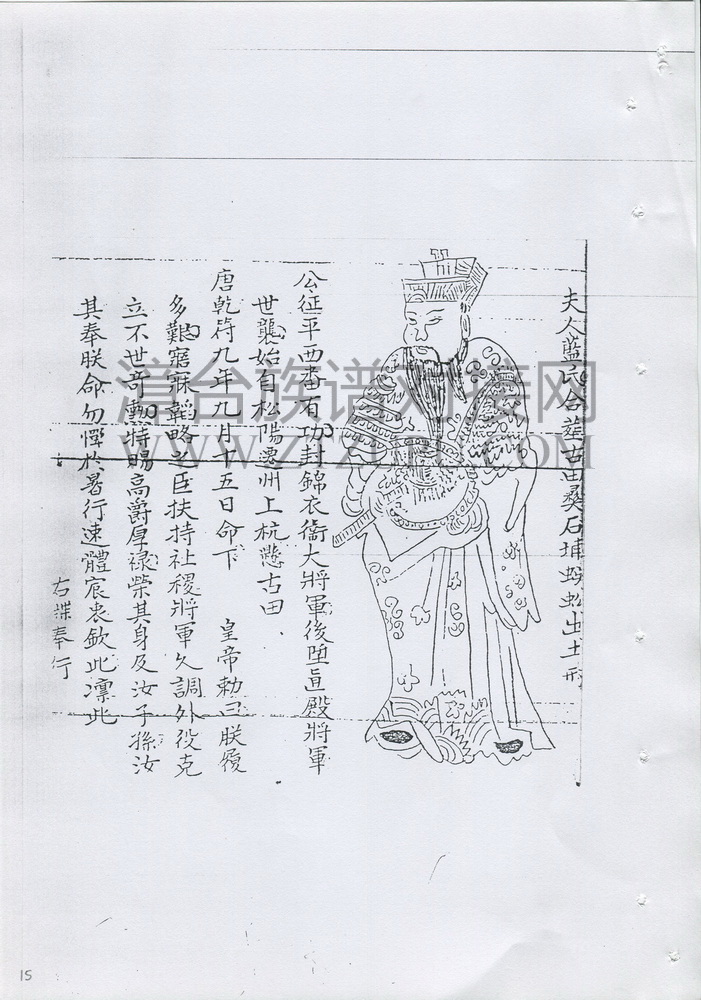 夫人藍氏合葬古田彝石埔蜈蚣出土形
公征平西番有功封錦衣衛大將軍後陞直殿將軍
世襲始自松陽遷州上杭懋古田
唐乾符九年九月十五日命下 皇帝勅曰朕履
多艱寤寐韜略之臣扶持社稷將軍久調外役克
立不世奇勳特賜高爵厚祿榮其身及汝子孫汝
其奉朕命勿憚於暑行速體宸衷欽此凜此
右牒奉行
漳台族谱对接网
15